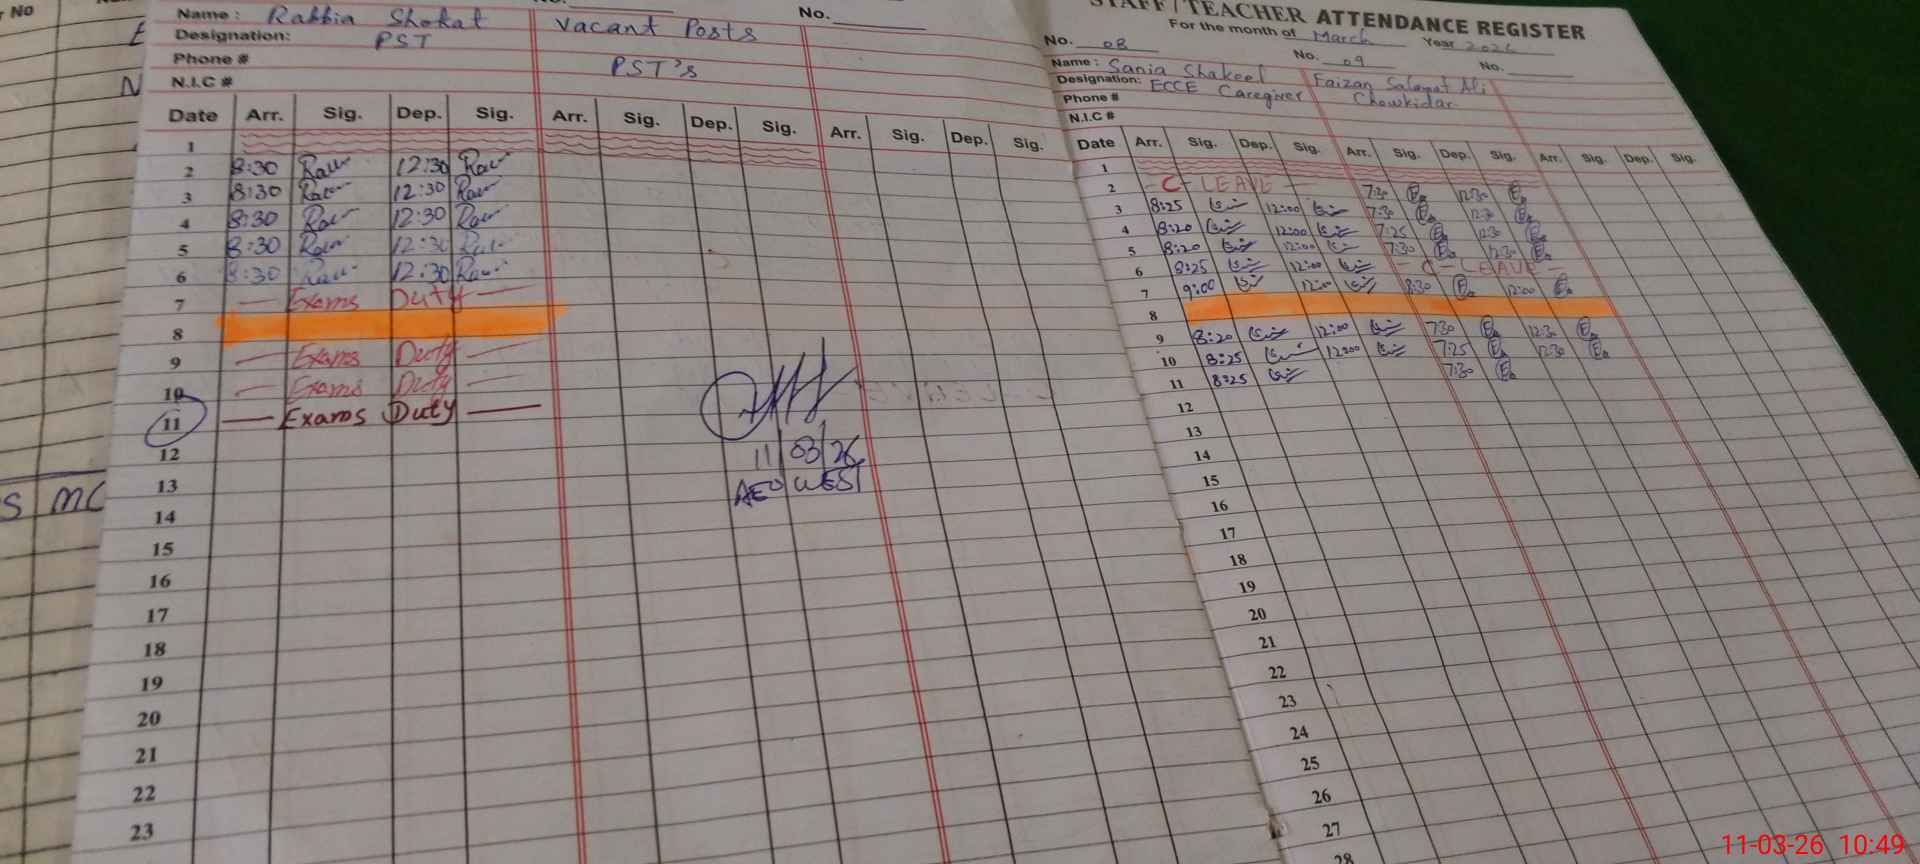 r No
S MC
No.
No.
Name : Rabbia Shokat Vacant Posts
Designation: PST
Phone # PST's
N.I.C #
Date Arr. Sig. Dep. Sig. Arr. Sig. Dep. Sig. Arr. Sig. Dep. Sig.
1
2 8:30 12:30
3 8:30 12:30
4 8:30 12:30
5 8:30 12:30
6 8:30 12:30
7 — Exams Duty —
8
9 — Exams Duty —
10 — Exams Duty —
11 — Exams Duty —
12 11/03/26
13 AEO WEST
14
15
16
17
18
19
20
21
22
23
STAFF/TEACHER ATTENDANCE REGISTER
For the month of March Year 2026
No. 08 No. 09 No.
Name : Sania Shakeel Faizan Salamat Ali
Designation: ECCE Caregiver Chowkidar
Phone #
N.I.C #
Date Arr. Sig. Dep. Sig. Arr. Sig. Dep. Sig. Arr. Sig. Dep. Sig.
1
2 — C - LEAVE — 7:30 12:30
3 8:25 12:00 7:30 12:30
4 8:20 12:00 7:25 12:30
5 8:20 12:00 7:30 12:30
6 8:25 12:00 — C - LEAVE —
7 9:00 12:00 8:30 12:00
8
9 8:20 12:00 7:30 12:30
10 8:25 12:00 7:25 12:30
11 8:25 7:30
12
13
14
15
16
17
18
19
20
21
22
23
24
25
26
27
28
11-03-26 10:49